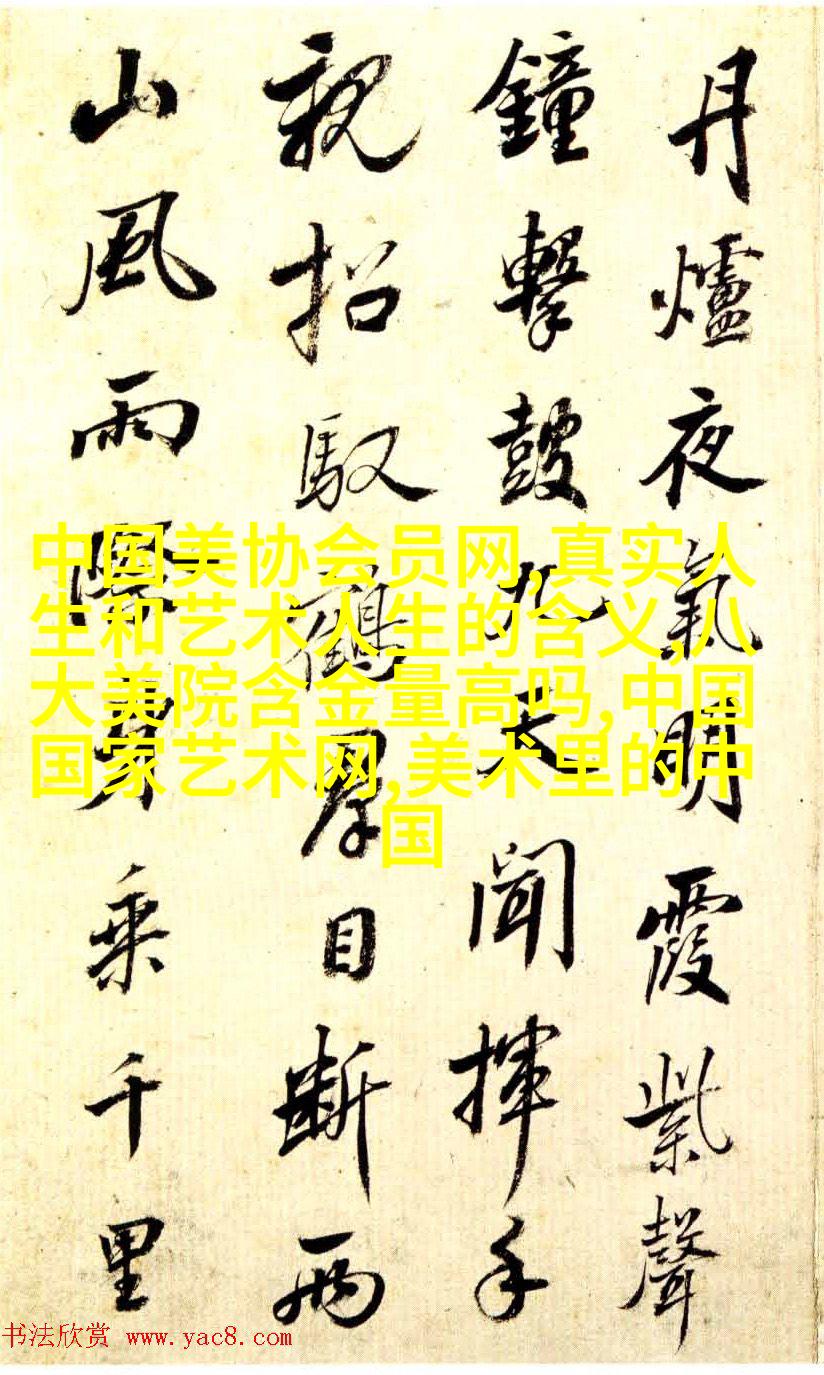 丹爐夜氣明霞紫聲
鐘擊鼓九天聞揮手
親招馭鶴羣目斷兩
山風雨乘千里
中国美协会员网,真实人
生和艺术人生的含义,八
大美院含金量高吗,中国
国家艺术网,美术里的中
国
书法欣赏 www.yac8.com